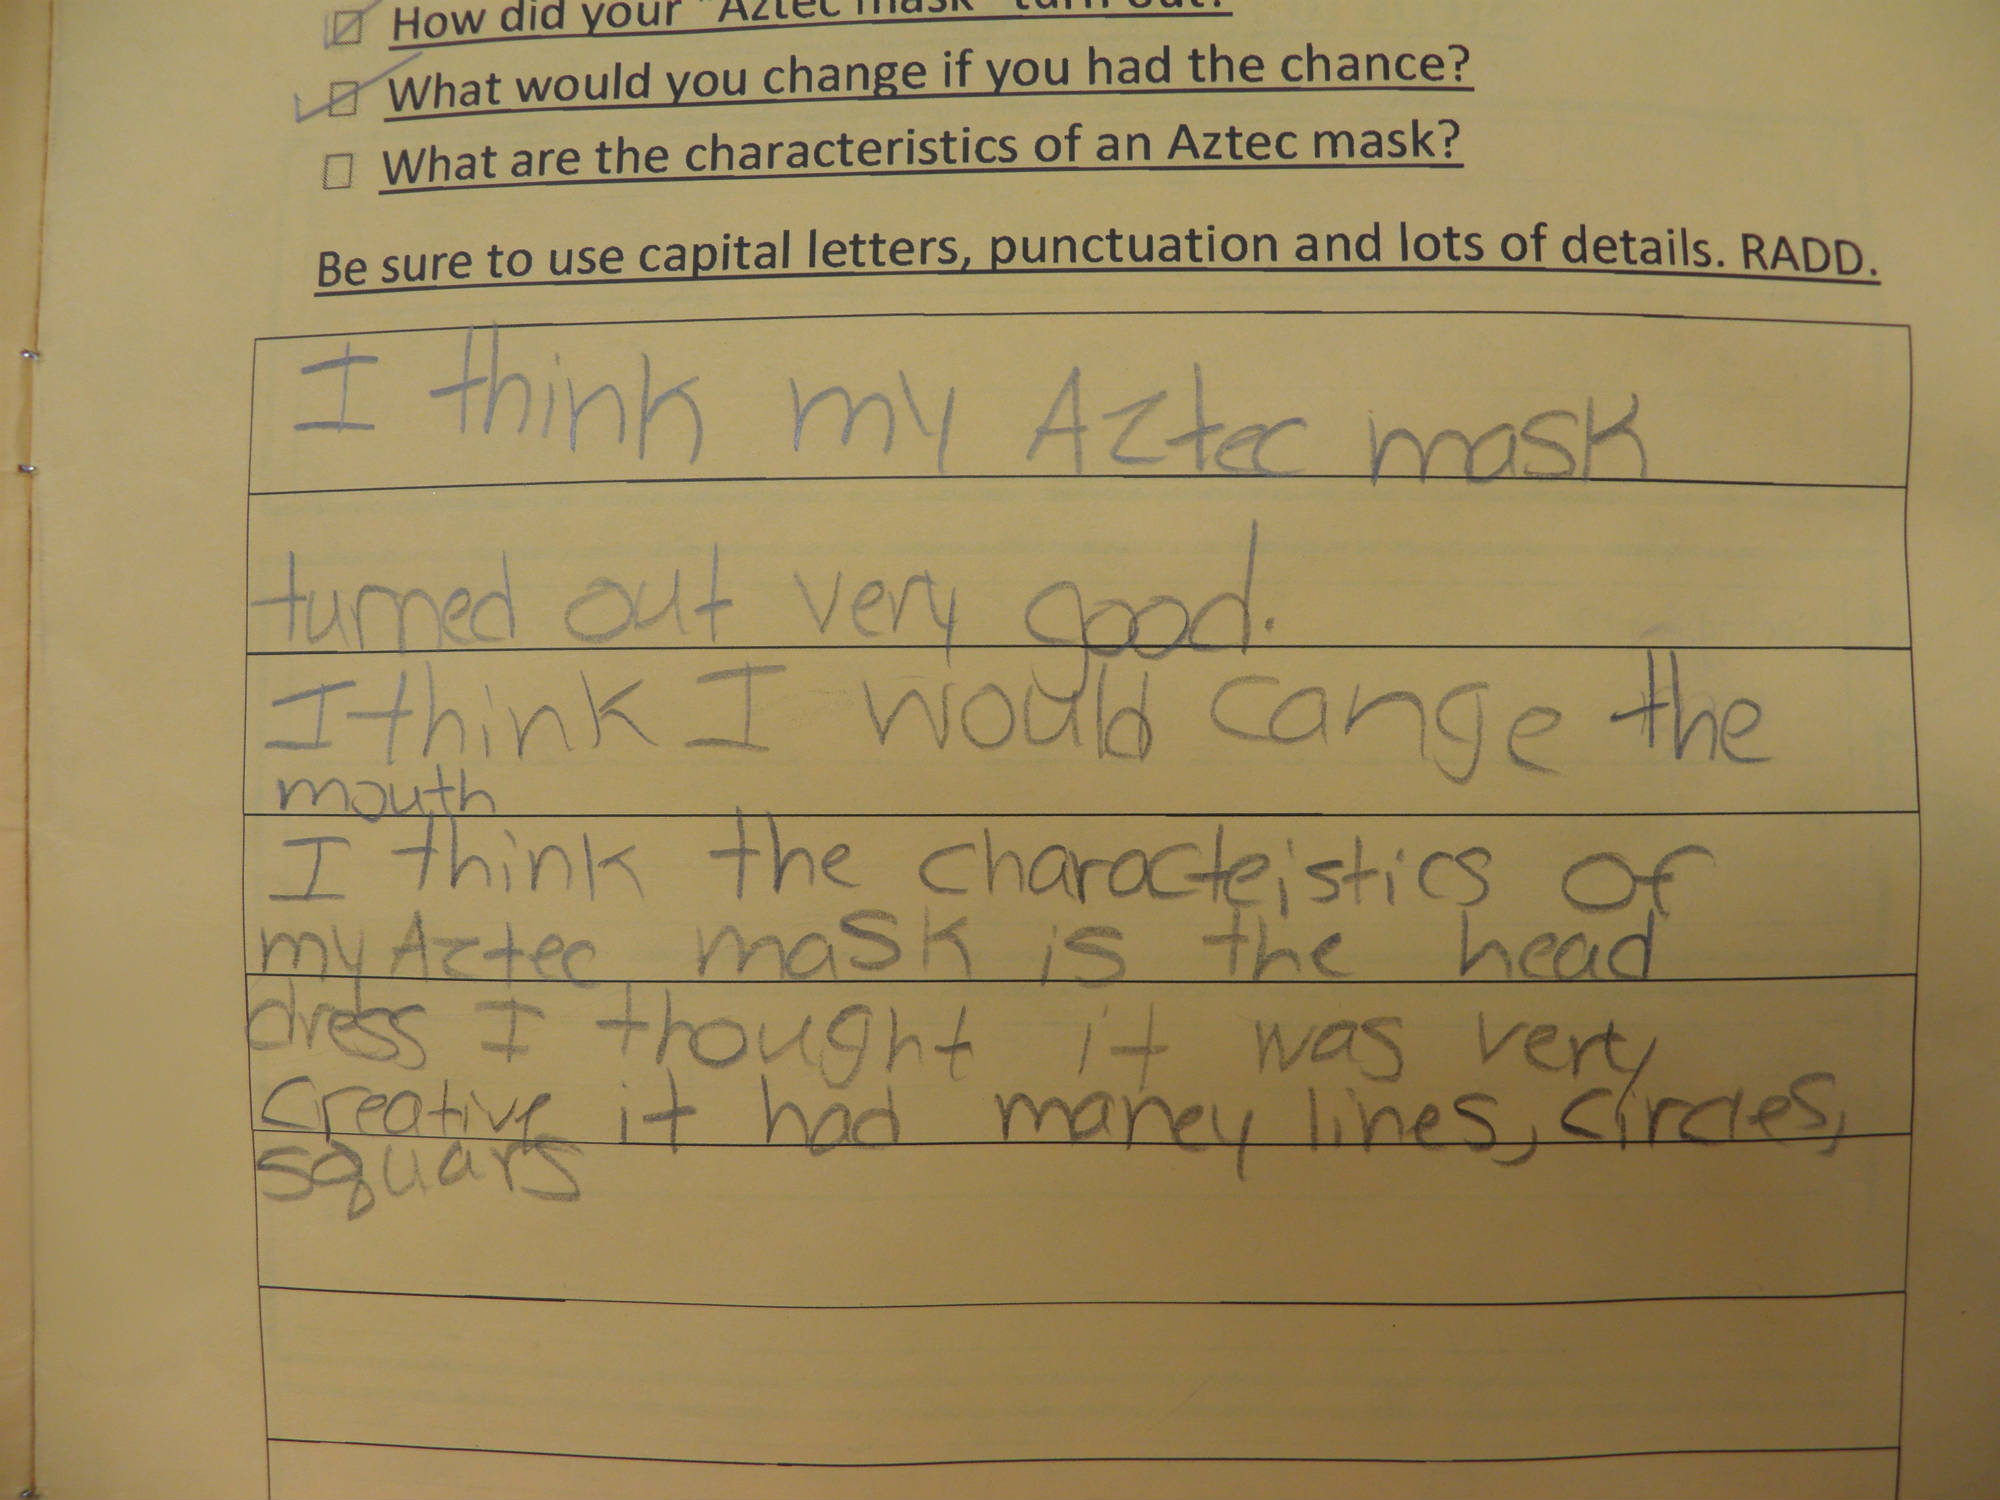 How did your "Aztec mask" turn out?
What would you change if you had the chance?
What are the characteristics of an Aztec mask?
Be sure to use capital letters, punctuation and lots of details. RADD.
I think my Aztec mask
turned out very good.
I think I would cange the
mouth
I think the characteistics of
my Aztec mask is the head
dress I thought it was very
creative it had maney lines, circles,
squars